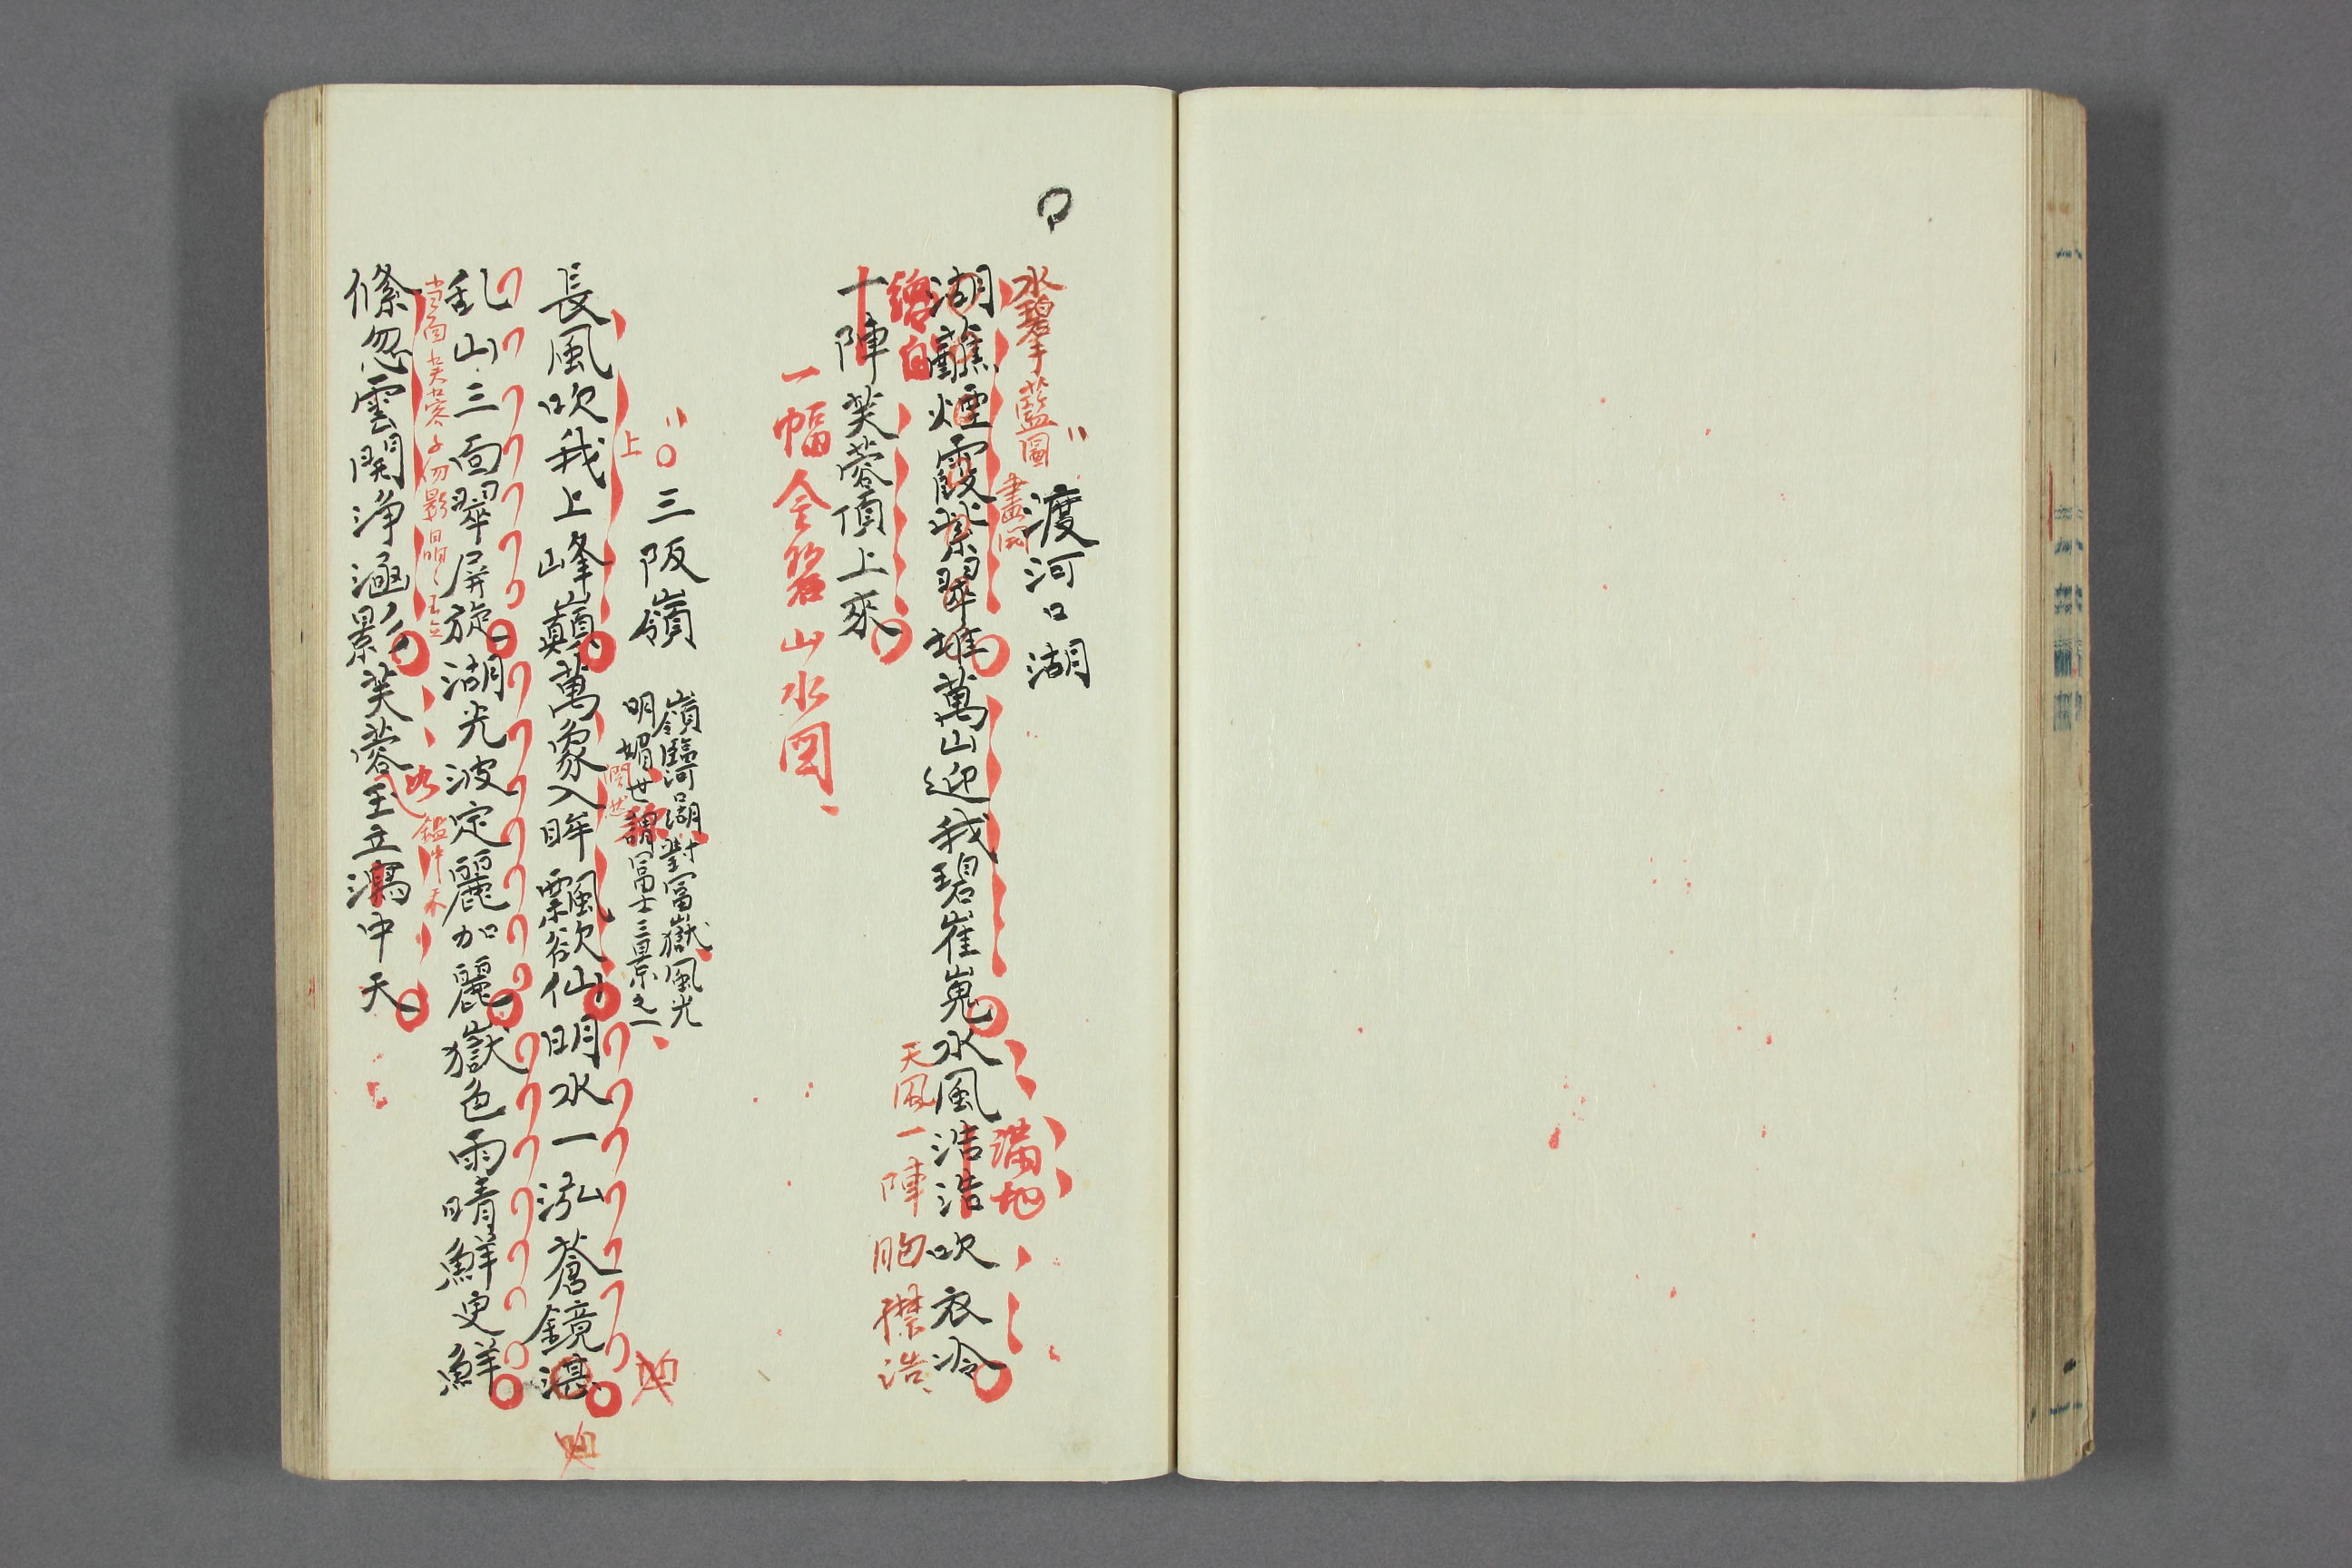 渡河口湖
水碧拏藍圖
畫圖
湖蘸煙霞紫翠堆萬山迎我碧崔嵬水風浩浩吹衣冷
滿地
天風一陣胸襟浩
總自
一陣芙蓉頂上來
一幅金碧山水図
三阪嶺
嶺臨河口湖對富嶽風光
明媚世謂富士三景之一
上
長風吹我上峰巔萬象入眸飄欲仙明水一泓蒼鏡湛
乱山三面翠屏旋湖光波定麗加麗嶽色雨晴鮮更鮮
当面芙蓉子
影晶〻玉立
鑑中天
倏忽雲開浄涵影芙蓉玉立瀉中天